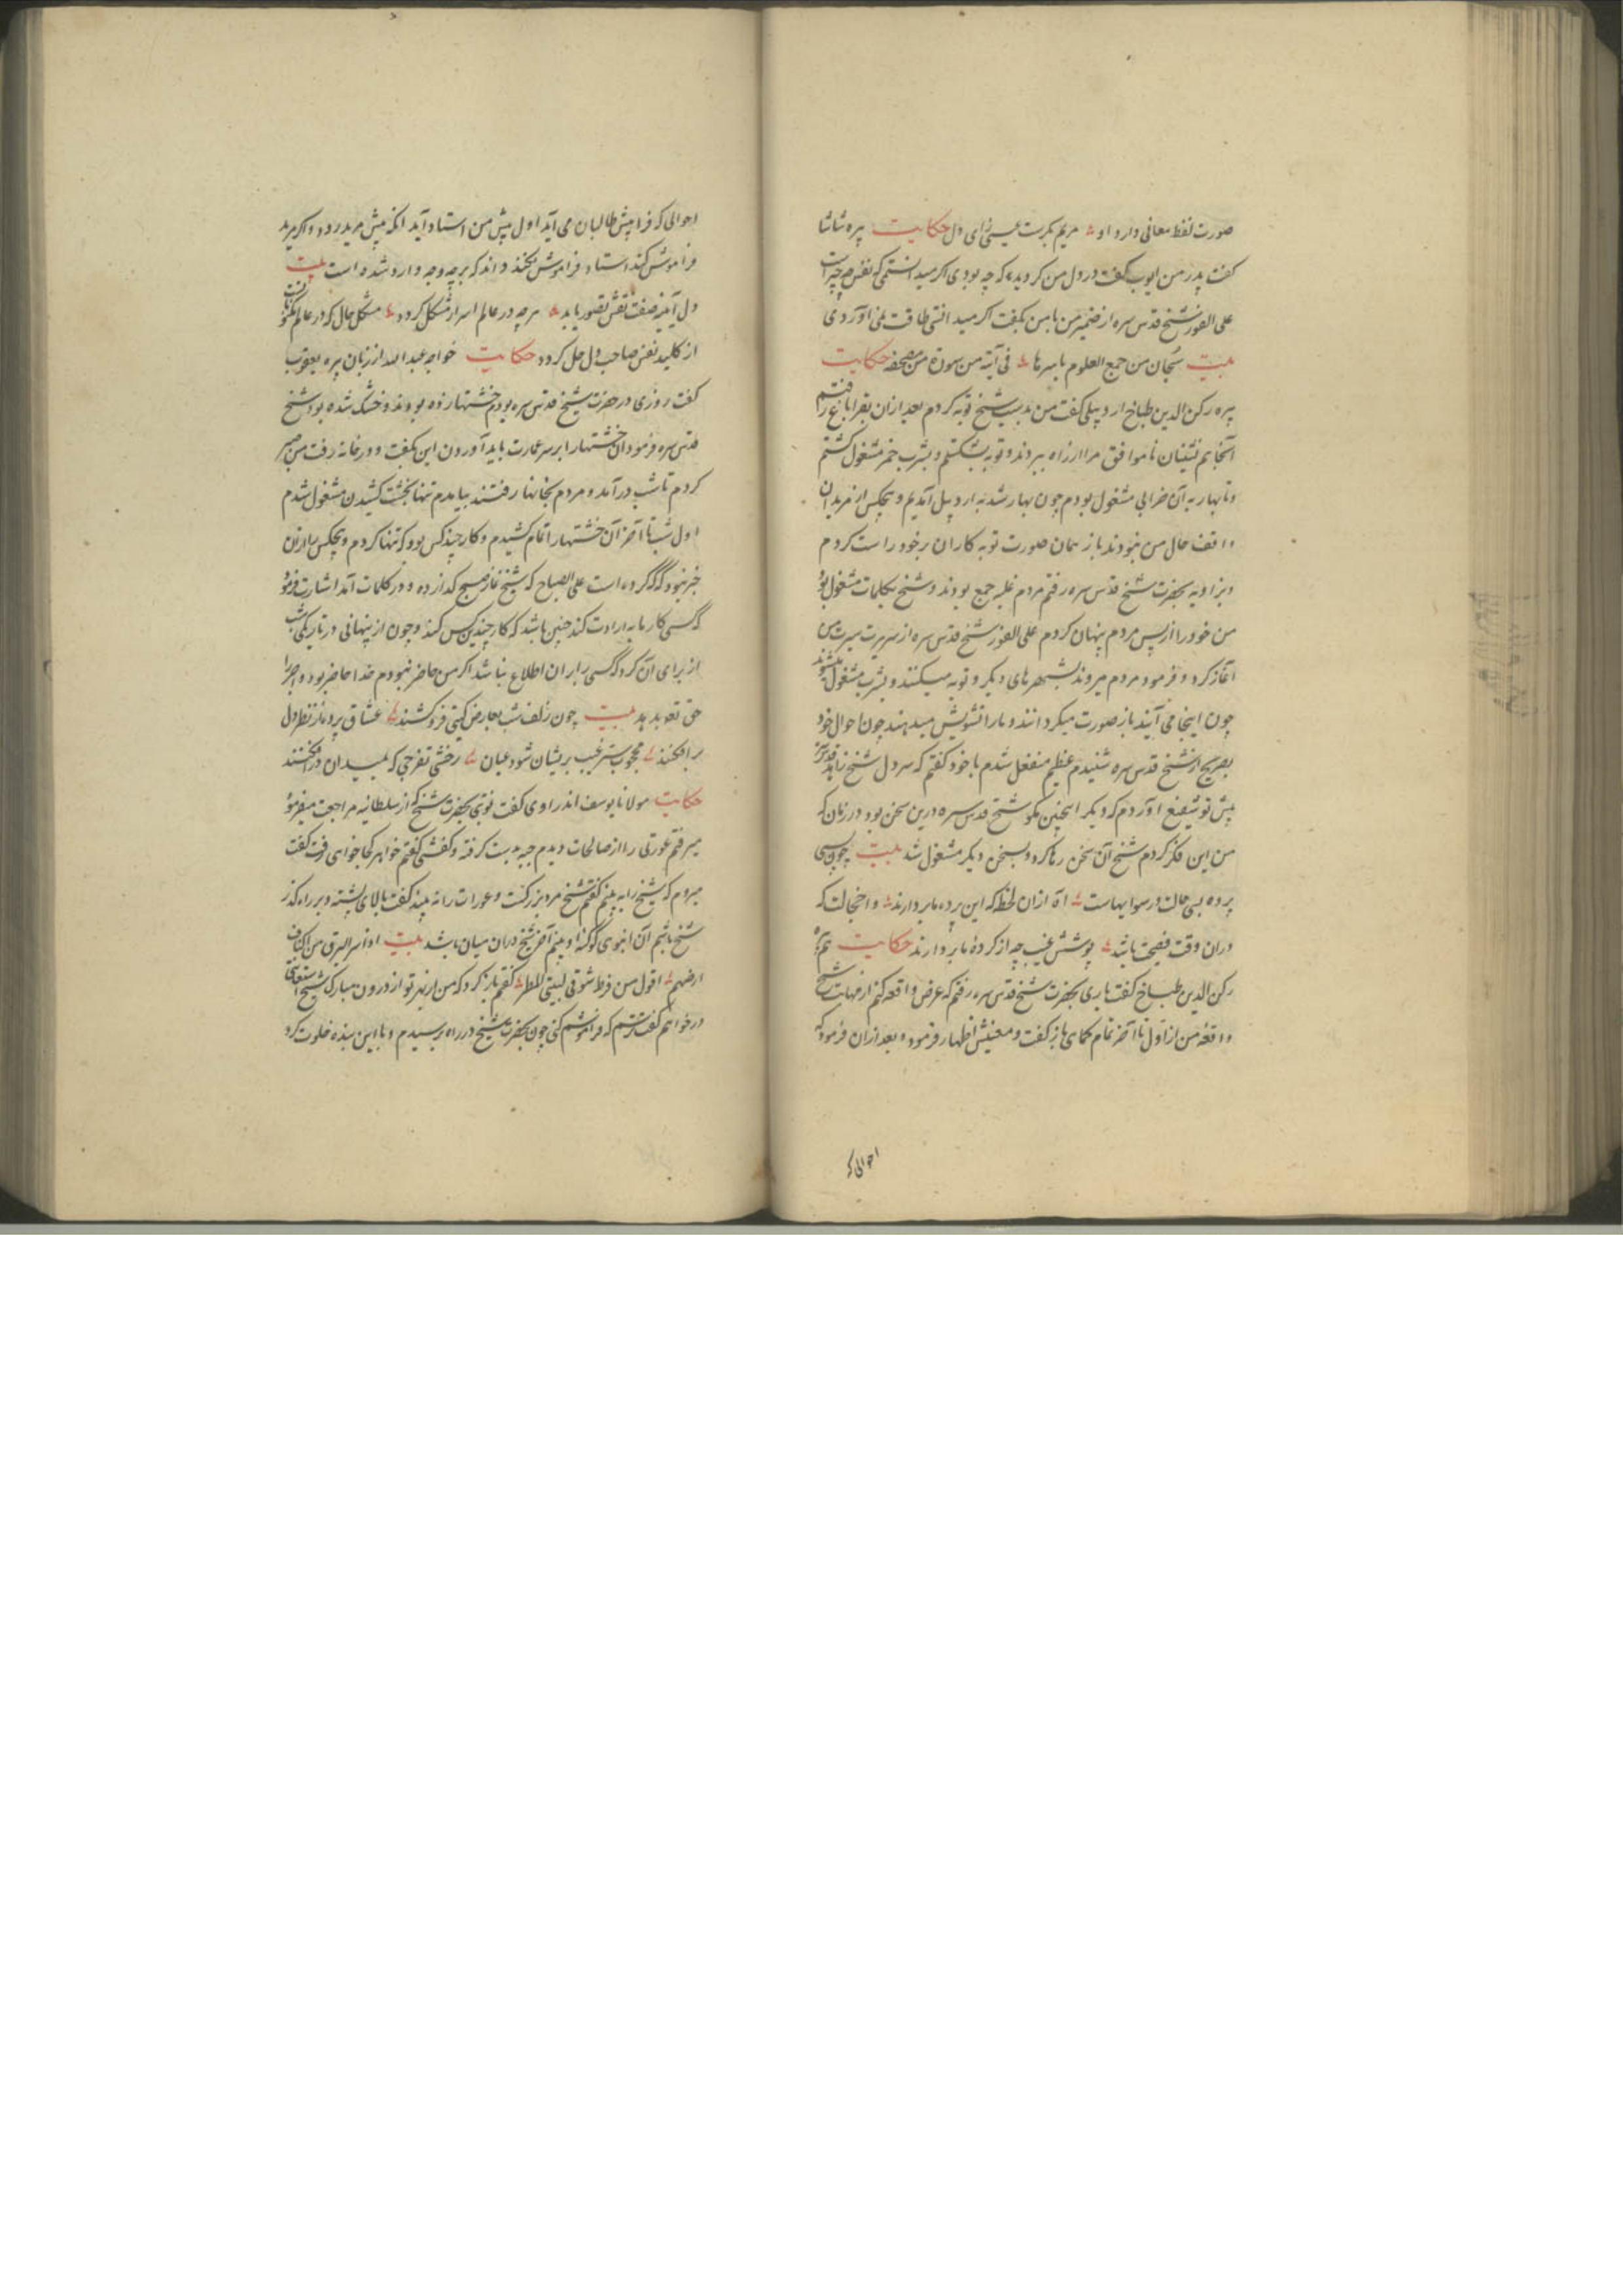 صورت لفظ معانی دارد او مریم بکرست عیسی زای دل حکایت پیره شاشا
گفت پدر من ایوب گفت در دل من گردید که چه بودی اگر میدانستمی که نفس چه چیز است
علی الفور شیخ قدس سره از ضمیر من با من بگفت اگر میدانستی طاقت نمی آوردی
بیت سبحان من جمع العلوم باسرها فی آیة من سورة من مصحفه حکایت
پیره رکن الدین طباخ اردبیلی گفت من بدست شیخ توبه کردم بعد از ان بقراباغ رفتم
آنجا هم نشینان ناموافق مرا از راه ببردند و توبه بشکستم و بشرب خمر مشغول گشتم
و تا بهار به آن خرابی مشغول بودم چون بهار شد به اردبیل آمدیم و هیچکس از مریدان
واقف حال من نبودند باز همان صورت توبه کاران بر خود راست کردم
و بزاویه بحضرت شیخ قدس سره رفتم مردم غلبه جمع بودند و شیخ بکلمات مشغول بود
من خود را از پس مردم پنهان کردم علی الفور شیخ قدس سره از سریرت سیرت من
آغاز کرد و فرمود مردم میروند بشهرهای دیگر و توبه میشکنند و بشرب مشغول میشوند
چون اینجا می آیند باز صورت میگردانند و ما را تشویش میدهند چون احوال خود
بصریح از شیخ قدس سره شنیدم عظیم منفعل شدم با خود گفتم که سر دل شیخ زاهد قدس سره
پیش تو شفیع آوردم که دیگر اینچنین مگو شیخ قدس سره درین سخن بود در زمان که
من این فکر کردم شیخ آن سخن رها کرد و بسخن دیگر مشغول شد بیت چون پس
پرده بسی حالت رسوائیهاست آه ازان لحظه که این پرده ما بردارند و اخجالت که
دران وقت فضیحت باشد پوشش غیب چه از کردهٔ ما بردارند حکایت هم پیره
رکن الدین طباخ گفت باری بحضرت شیخ قدس سره رفتم که عرض واقعه کنم از مهابت شیخ
واقعهٔ من از اول تا آخر تمام بکمالی باز گفت و معنیش اظهار فرمود و بعد ازان فرمود که
احوالی که
احوالی که فرا پیش طالبان می آید اول پیش من استاد آید آنگه پیش مرید رود و اگر مرید
فراموش کند استاد فراموش نکند داند که بر چه وجه وارد شده است بیت
دل آینه صفت نقش تصور یابد هرچه در عالم اسرار مشکل گردد مشکل حال که در عالم مکنونات
از کلید نفس صاحب دل حل گردد حکایت خواجه عبد الله از زبان پیره یعقوب
گفت روزی در حضرت شیخ قدس سره بودم خشتها زده بودند و خشک شده بود شیخ
قدس سره فرمود آن خشتها را بر سر عمارت باید آوردن این بگفت و در خانه رفت من صبر
کردم تا شب درآمد و مردم بخانها رفتند بیامدم تنها بخشت کشیدن مشغول شدم
اول شب تا آخر آن خشتها را تمام کشیدم و کار چند کس بود که تنها کردم و هیچکس را ازان
خبر نبود که که کرده است علی الصباح که شیخ نماز صبح گذارده و در کلمات آمد اشارت فرمود
که کسی کار ما به ارادت کند چنین باشد که کار چندین کس کند و چون از پنهانی در تاریکی شب
از برای آن کرد که کسی را بر ان اطلاع نباشد اگر من حاضر نبودم خدا حاضر بود و اجر او را
حق تعالی بدهد بیت چون زلف شب بعارض گیتی فروکشند عشاق پرده از نظر دل
برافکنند محجوب ستر غیب بریشان شود عیان رخش تفرجی که بمیدان درافکنند
حکایت مولانا یوسف اندراوی گفت نوبتی بحضرت شیخ که از سلطانیه مراجعت میفرمود
میرفتم عورتی را از صالحات دیدم جبه بدست گرفته و کفشی گفتم خواهر کجا خواهی رفت گفت
میروم که شیخ را به بینم گفتم شیخ مرد بزرگست و عورات را نه بیند گفت بالای پشته بر راه گذر
شیخ باشم آن انبوهی کوکبهٔ او بینم آخر شیخ دران میان باشد بیت اذا سر البرق من اکناف
ارضهم اقول من فرط شوقی لیتنی المطر گفتم باز گرد که من از بهر تو از درون مبارک شیخ استدعای
درخواهم گفت ترسم که فراموشم کنی چون بحضرت شیخ در راه برسیدم و با این بنده خلوت کرد